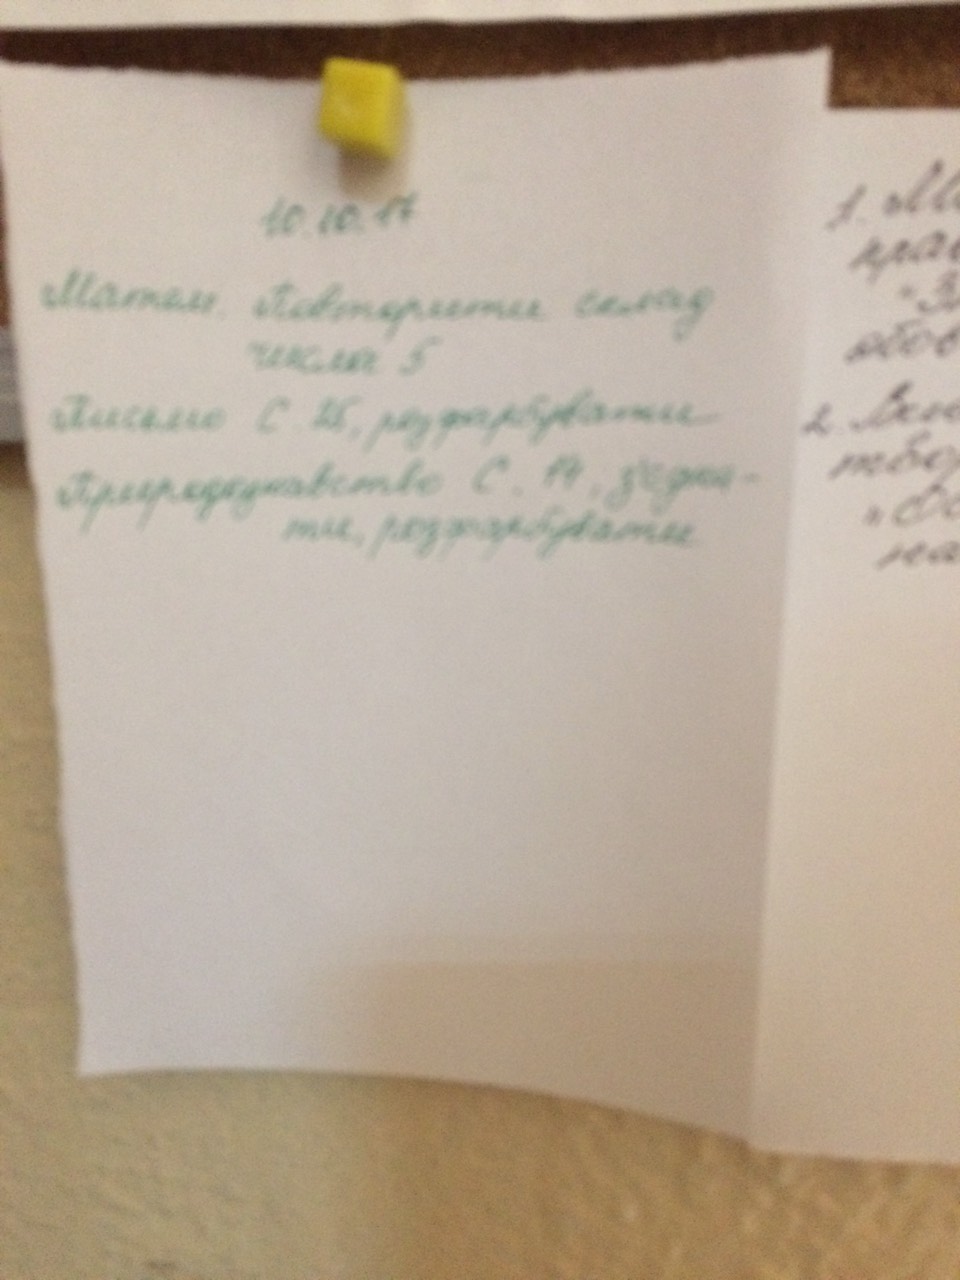 10.10.17
Матем. Повторити склад
числа 5
Письмо С. 25, розфарбувати
Природознавство С. 14, з'єдна-
ти, розфарбувати
1.
2.